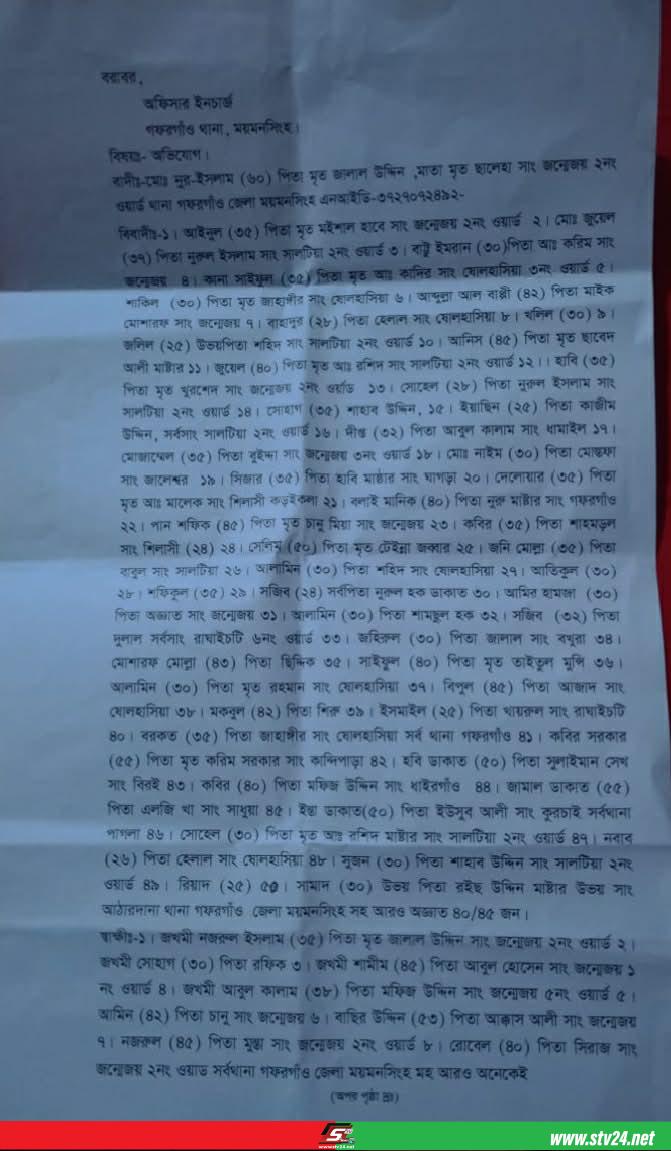 বরাবর,
অফিসার ইনচার্জ
গফরগাঁও থানা, ময়মনসিংহ।
বিষয়ঃ- অভিযোগ।
বাদীঃ-মোঃ নুর-ইসলাম (৬০) পিতা মৃত জালাল উদ্দিন ,মাতা মৃত ছালেহা সাং জন্মেজয় ২নং
ওয়ার্ড থানা গফরগাঁও জেলা ময়মনসিংহ এনআইডি-৩৭২৭০৭২৪৯২-
বিবাদীঃ-১। আইনুল (৩৫) পিতা মৃত মইশাল হাবে সাং জন্মেজয় ২নং ওয়ার্ড ২। মোঃ জুয়েল
(৩৭) পিতা নুরুল ইসলাম সাং সালটিয়া ২নং ওয়ার্ড ৩। বাট্টু ইমরান (৩০)পিতা আঃ করিম সাং
জন্মেজয় ৪। কানা সাইফুল (৩৫) পিতা মৃত আঃ কাদির সাং ষোলহাসিয়া ৩নং ওয়ার্ড ৫।
শাকিল (৩০) পিতা মৃত জাহাঙ্গীর সাং ষোলহাসিয়া ৬। আব্দুল্লা আল বাপ্পী (৪২) পিতা মাইক
মোশারফ সাং জন্মেজয় ৭। বাহাদুর (২৮) পিতা হেলাল সাং ষোলহাসিয়া ৮। খলিল (৩০) ৯।
জলিল (২৫) উভয়পিতা শহিদ সাং সালটিয়া ২নং ওয়ার্ড ১০। আনিস (৪৫) পিতা মৃত ছাবেদ
আলী মাষ্টার ১১। জুয়েল (৪০) পিতা মৃত আঃ রশিদ সাং সালটিয়া ২নং ওয়ার্ড ১২।। হাবি (৩৫)
পিতা মৃত খুরশেদ সাং জন্মেজয় ২নং ওর্য়াড ১৩। সোহেল (২৮) পিতা নুরুল ইসলাম সাং
সালটিয়া ২নং ওয়ার্ড ১৪। সোহাগ (৩৫) শাহাব উদ্দিন, ১৫। ইয়াছিন (২৫) পিতা কাজীম
উদ্দিন, সর্বসাং সালটিয়া ২নং ওয়ার্ড ১৬। দীপ্ত (৩২) পিতা আবুল কালাম সাং ধামাইল ১৭।
মোজাম্মেল (৩৫) পিতা বুইদ্দা সাং জন্মেজয় ৩নং ওয়ার্ড ১৮। মোঃ নাইম (৩০) পিতা মোস্তফা
সাং জালেশ্বর ১৯। সিজার (৩৫) পিতা হাবি মাষ্টার সাং ঘাগড়া ২০। দেলোয়ার (৩৫) পিতা
মৃত আঃ মালেক সাং শিলাসী কড়ইকলা ২১। বলাই মানিক (৪০) পিতা নুরু মাষ্টার সাং গফরগাঁও
২২। পান শফিক (৪৫) পিতা মৃত চানু মিয়া সাং জন্মেজয় ২৩। কবির (৩৫) পিতা শাহমড়ল
সাং শিলাসী (২৪) ২৪। সেলিম (৫০) পিতা মৃত টেইন্না জব্বার ২৫। জনি মোল্লা (৩৫) পিতা
বাবুল সাং সালটিয়া ২৬। আলামিন (৩০) পিতা শহিদ সাং ষোলহাসিয়া ২৭। আতিকুল (৩০)
২৮। শফিকুল (৩৫) ২৯। সজিব (২৪) সর্বপিতা নুরুল হক ডাকাত ৩০। আমির হামজা (৩০)
পিতা অজ্ঞাত সাং জন্মেজয় ৩১। আলামিন (৩০) পিতা শামছুল হক ৩২। সজিব (৩২) পিতা
দুলাল সর্বসাং রাঘাইচটি ৬নং ওয়ার্ড ৩৩। জহিরুল (৩০) পিতা জালাল সাং বখুরা ৩৪।
মোশারফ মোল্লা (৪৩) পিতা ছিদ্দিক ৩৫। সাইফুল (৪০) পিতা মৃত তাইতুল মুন্সি ৩৬।
আলামিন (৩০) পিতা মৃত রহমান সাং ষোলহাসিয়া ৩৭। বিপুল (৪৫) পিতা আজাদ সাং
ষোলহাসিয়া ৩৮। মকবুল (৪২) পিতা শিরু ৩৯। ইসমাইল (২৫) পিতা খায়রুল সাং রাঘাইচটি
৪০। বরকত (৩৫) পিতা জাহাঙ্গীর সাং ষোলহাসিয়া সর্ব থানা গফরগাঁও ৪১। কবির সরকার
(৫৫) পিতা মৃত করিম সরকার সাং কান্দিপাড়া ৪২। হবি ডাকাত (৫০) পিতা সুলাইমান সেখ
সাং বিরই ৪৩। কবির (৪০) পিতা মফিজ উদ্দিন সাং ধাইরগাঁও ৪৪। জামাল ডাকাত (৫৫)
পিতা এলজি খা সাং সাধুয়া ৪৫। ইন্তা ডাকাত(৫০) পিতা ইউসুব আলী সাং কুরচাই সর্বথানা
পাগলা ৪৬। সোহেল (৩০) পিতা মৃত আঃ রশিদ মাষ্টার সাং সালটিয়া ২নং ওয়ার্ড ৪৭। নবাব
(২৬) পিতা হেলাল সাং ষোলহাসিয়া ৪৮। সুজন (৩০) পিতা শাহাব উদ্দিন সাং সালটিয়া ২নং
ওয়ার্ড ৪৯। রিয়াদ (২৫) ৫০। সামাদ (৩০) উভয় পিতা রইছ উদ্দিন মাষ্টার উভয় সাং
আঠারদানা থানা গফরগাঁও জেলা ময়মনসিংহ সহ আরও অজ্ঞাত ৪০/৪৫ জন।
স্বাক্ষীঃ-১। জখমী নজরুল ইসলাম (৩৫) পিতা মৃত জালাল উদ্দিন সাং জন্মেজয় ২নং ওয়ার্ড ২।
জখমী সোহাগ (৩০) পিতা রফিক ৩। জখমী শামীম (৪৫) পিতা আবুল হোসেন সাং জন্মেজয় ১
নং ওয়ার্ড ৪। জখমী আবুল কালাম (৩৮) পিতা মফিজ উদ্দিন সাং জন্মেজয় ৫নং ওয়ার্ড ৫।
আমিন (৪২) পিতা চানু সাং জন্মেজয় ৬। বাছির উদ্দিন (৫৩) পিতা আক্কাস আলী সাং জন্মেজয়
৭। নজরুল (৪৫) পিতা মুন্তা সাং জন্মেজয় ২নং ওয়ার্ড ৮। রোবেল (৪০) পিতা সিরাজ সাং
জন্মেজয় ২নং ওয়াড সর্বথানা গফরগাঁও জেলা ময়মনসিংহ সহ আরও অনেকেই
(অপর পৃষ্ঠা দ্রঃ)
www.stv24.net